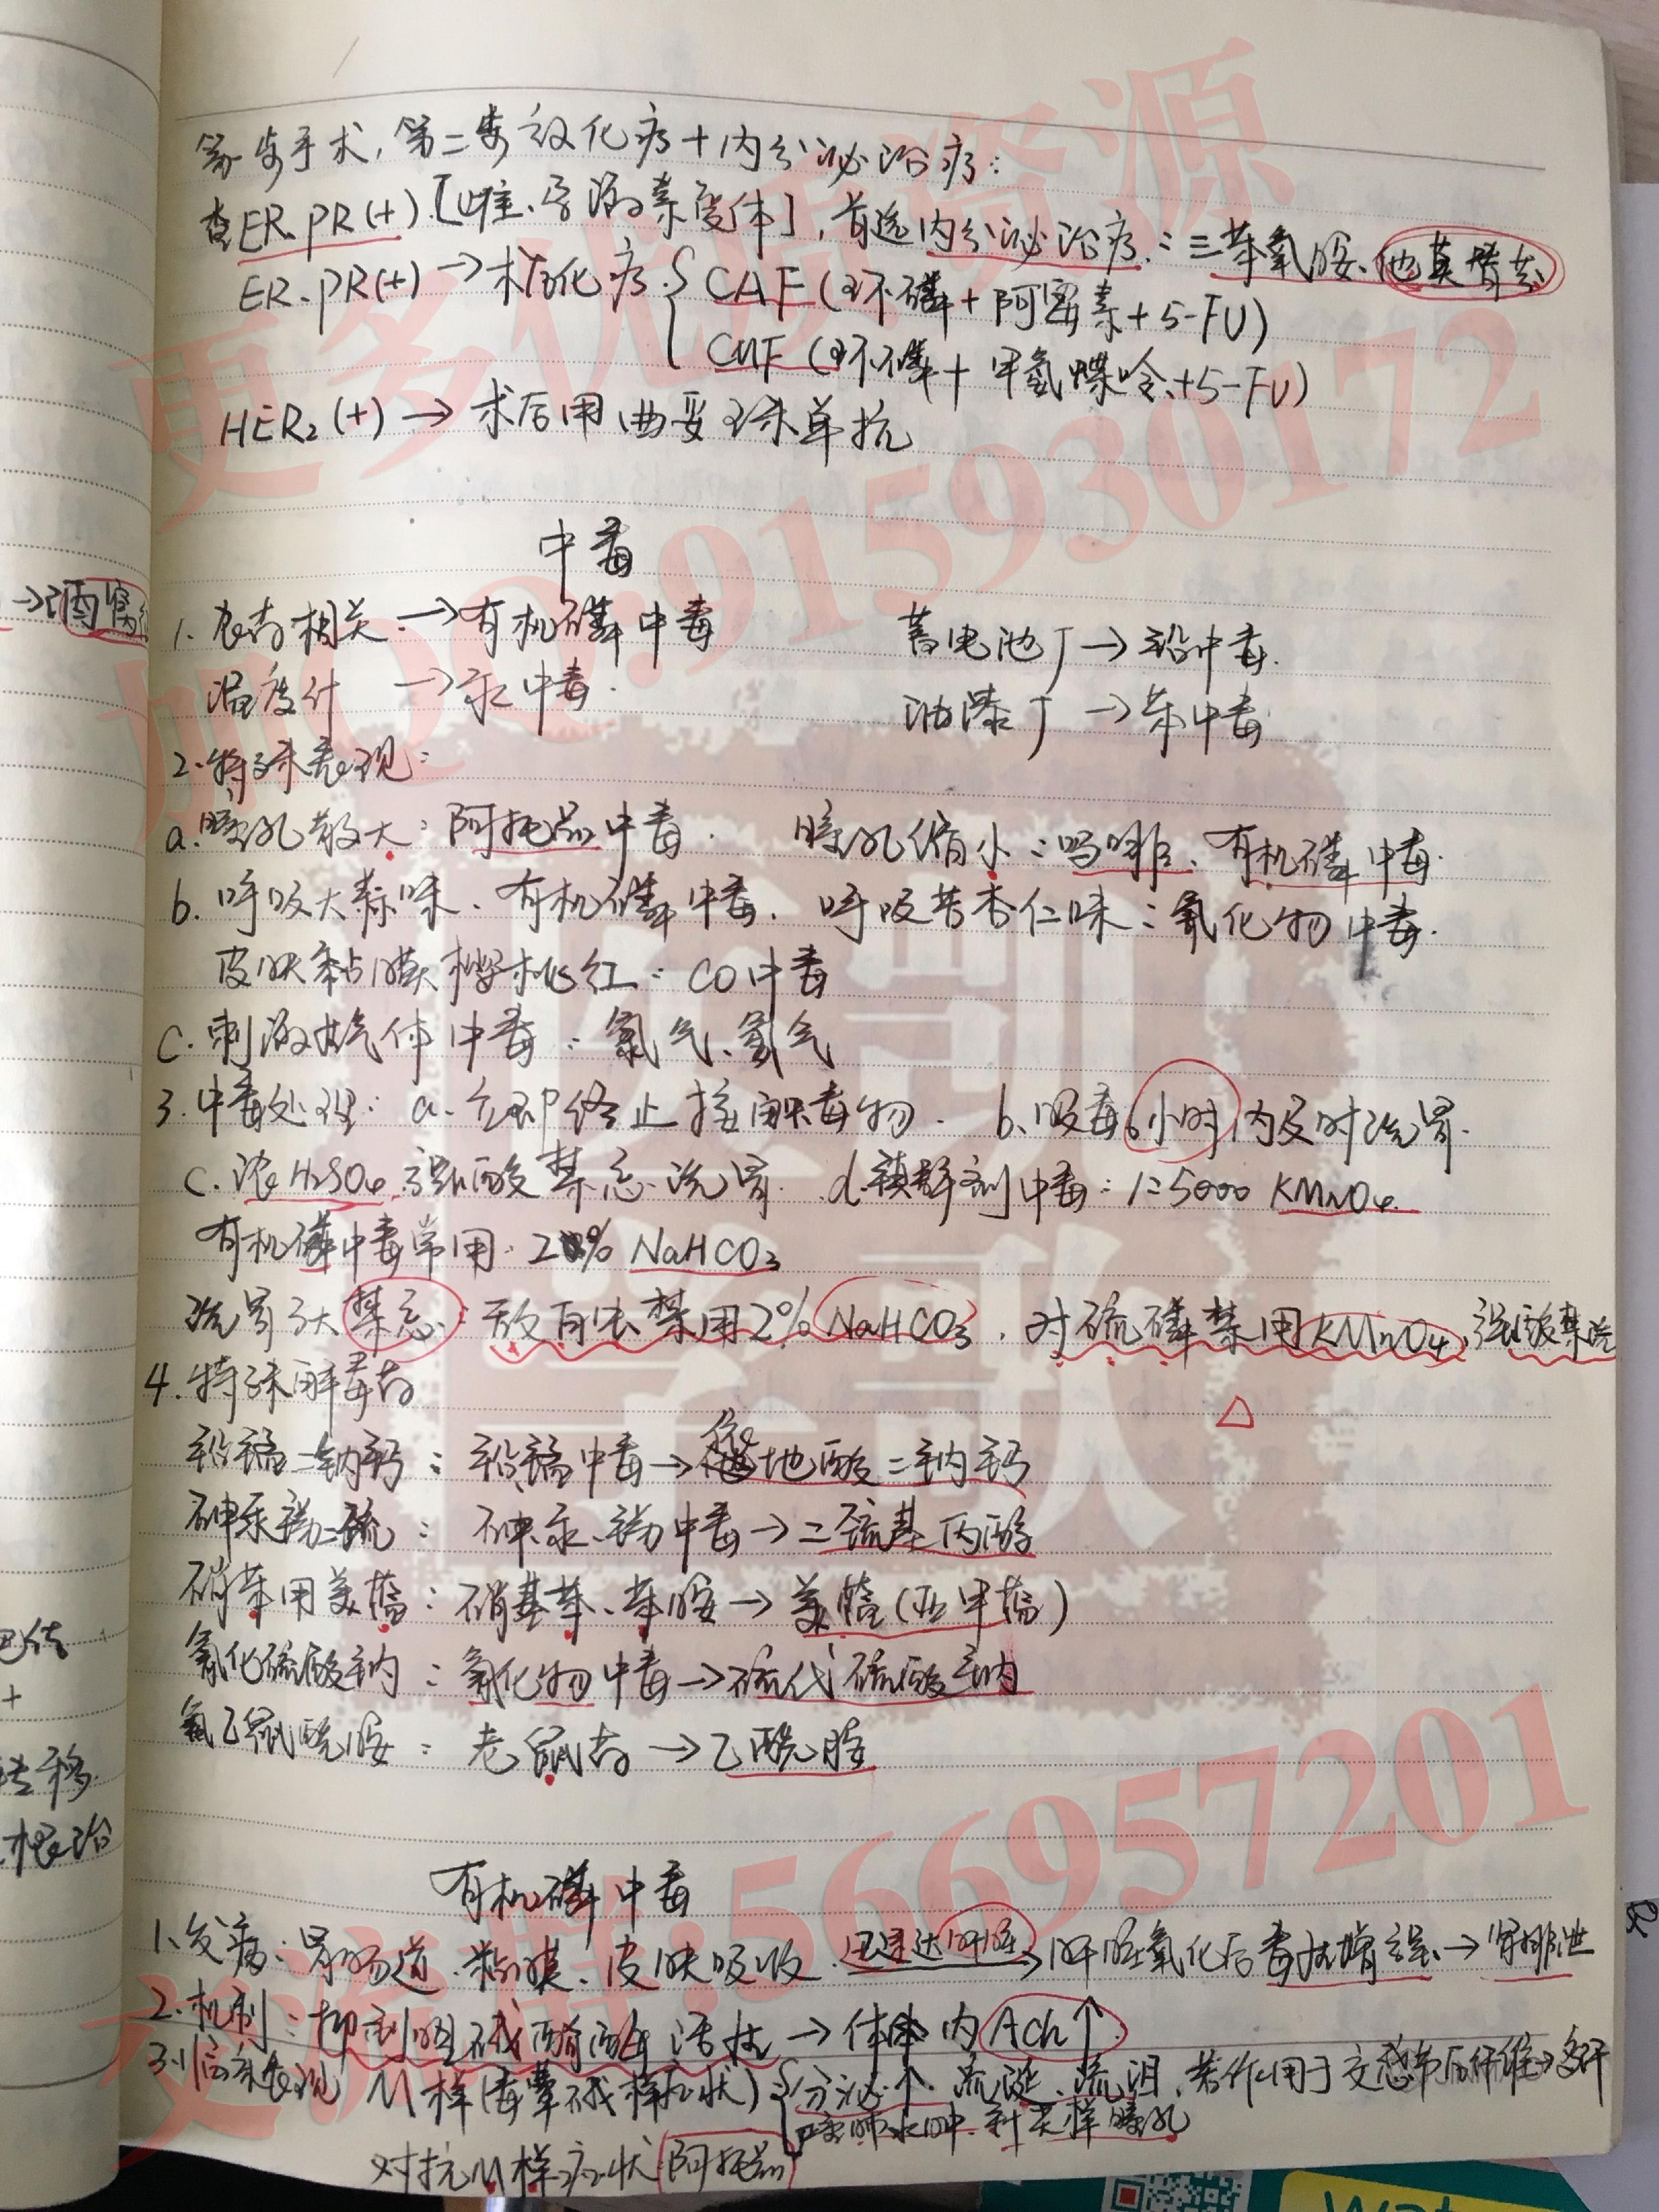 第一步手术，第二步放化疗+内分泌治疗：
查ER、PR(+)[雌、孕激素受体]，首选内分泌治疗：三苯氧胺、他莫昔芬
ER、PR(+)→术后化疗{CAF(环磷+阿霉素+5-FU)
CMF(环磷+甲氨蝶呤+5-FU)
HER2(+)→术后用曲妥珠单抗
中毒
→酒窝
1.农药相关→有机磷中毒 蓄电池厂→铅中毒.
温度计→汞中毒. 油漆厂→苯中毒
2.特殊表现：
a.瞳孔散大：阿托品中毒. 瞳孔缩小：吗啡、有机磷中毒.
b.呼吸大蒜味、有机磷中毒. 呼吸苦杏仁味：氰化物中毒.
皮肤黏膜樱桃红：CO中毒
c.刺激性气体中毒：氯气、氨气
3.中毒处理：a.立即终止接触毒物. b.吸毒6小时内及时洗胃.
c.浓H2SO4、强酸禁忌洗胃. d.镇静剂中毒：1:5000 KMnO4.
有机磷中毒常用：2% NaHCO3
洗胃3大禁忌：敌百虫禁用2% NaHCO3，对硫磷禁用KMnO4，强酸禁洗
4.特殊解毒药
铅镉二钠钙：铅镉中毒→依地酸二钠钙
砷汞锑二巯：砷、汞、锑中毒→二巯基丙醇
硝苯用美蓝：硝基苯、苯胺→美蓝(亚甲蓝)
氰化硫酸钠：氰化物中毒→硫代硫酸钠
氟乙鼠酰胺：老鼠药→乙酰胺
巴结
+
转移
根治
有机磷中毒
1.发病：胃肠道、黏膜、皮肤吸收 迅速达肝脏→肝脏氧化后毒性增强→肾排泄
2.机制：抑制胆碱酯酶活性→体内Ach↑.
3.临床表现 M样(毒蕈碱样症状){分泌↑、流涎、流泪，若作用于交感节后纤维→多汗
肺水肿、针尖样瞳孔
对抗M样症状 阿托品
更多优质资源
加QQ:915930172
交流群:566957201
医凯
学歌